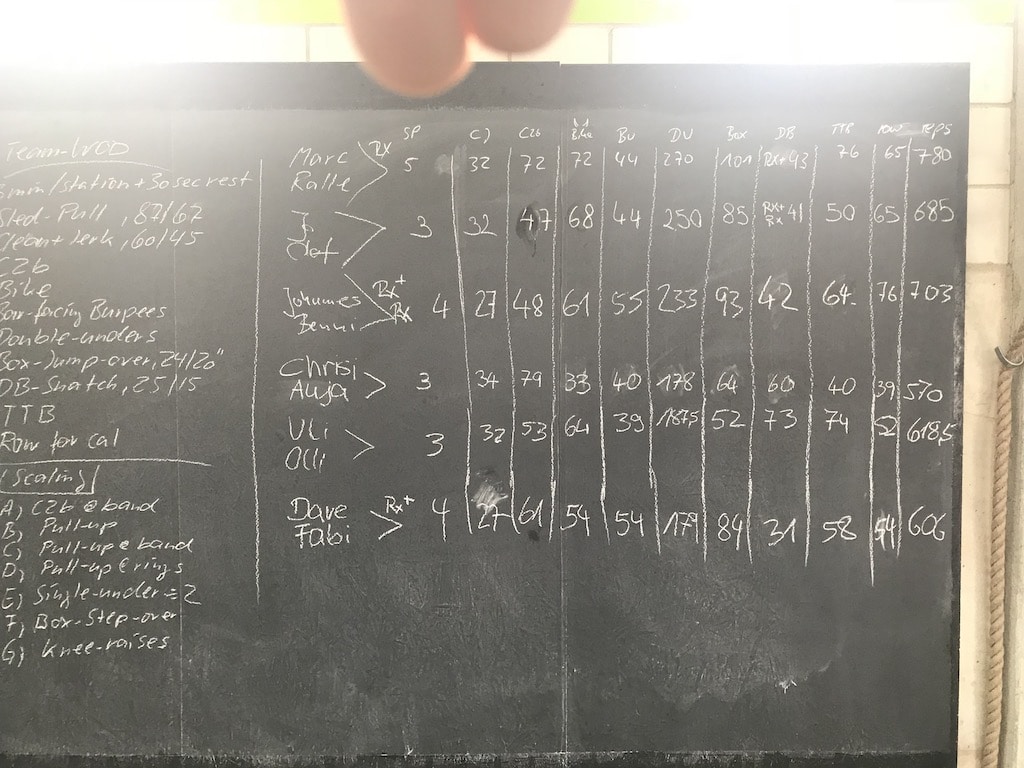 Team-WOD
3min/station + 30sec rest
Sled-Pull, 87/67
Clean+Jerk, 60/45
C2b
Bike
Box-facing Burpees
Double-unders
Box-Jump-over, 24/20"
DB-Snatch, 25/15
TTB
Row for cal
Scaling
A) C2b @ band
B) Pull-up
C) Pull-up @ band
D) Pull-up @ rings
E) Single-under = 2
F) Box-Step-over
G) Knee-raises
SP CJ C2b Bike BU DU Box DB TTB row reps
Marc Rx 5 32 72 72 44 270 101 Rx+ 43 76 65 780
Ralle
J 3 32 47 68 44 250 85 Rx+ 41 50 65 685
Rx
Johannes Rx+ 4 27 48 61 55 233 93 42 64 76 703
Benni Rx
Chrisi 3 34 79 33 40 178 64 60 40 39 570
Anja
Uli 3 32 53 64 39 187,5 52 73 74 52 618,5
Olli
Dave Rx+ 4 27 61 54 54 179 84 31 58 54 606
Fabi